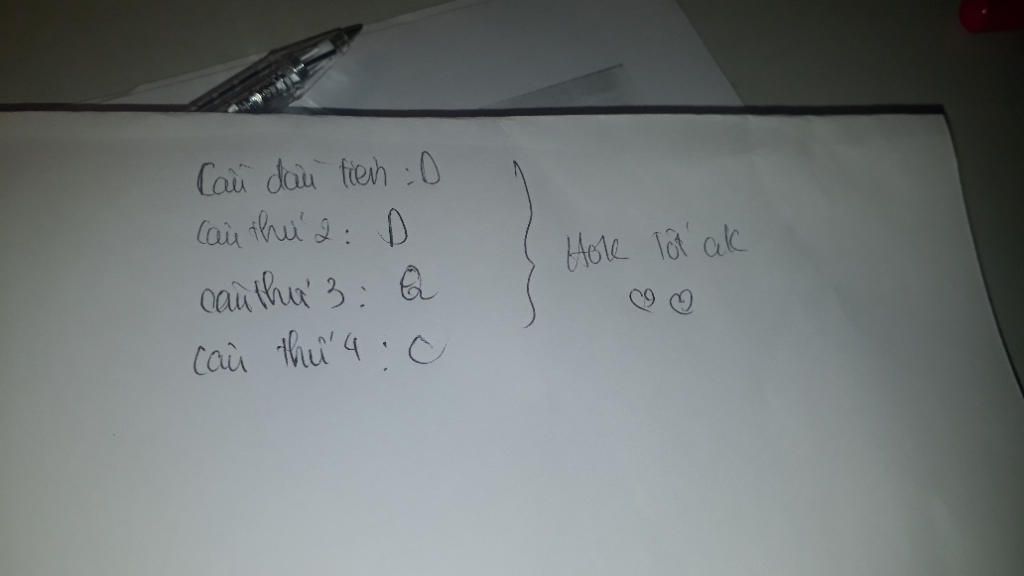 Câu đầu tiên : D
câu thứ 2 : D
câu thứ 3 : Q
câu thứ 4 : C
Hok tốt ak